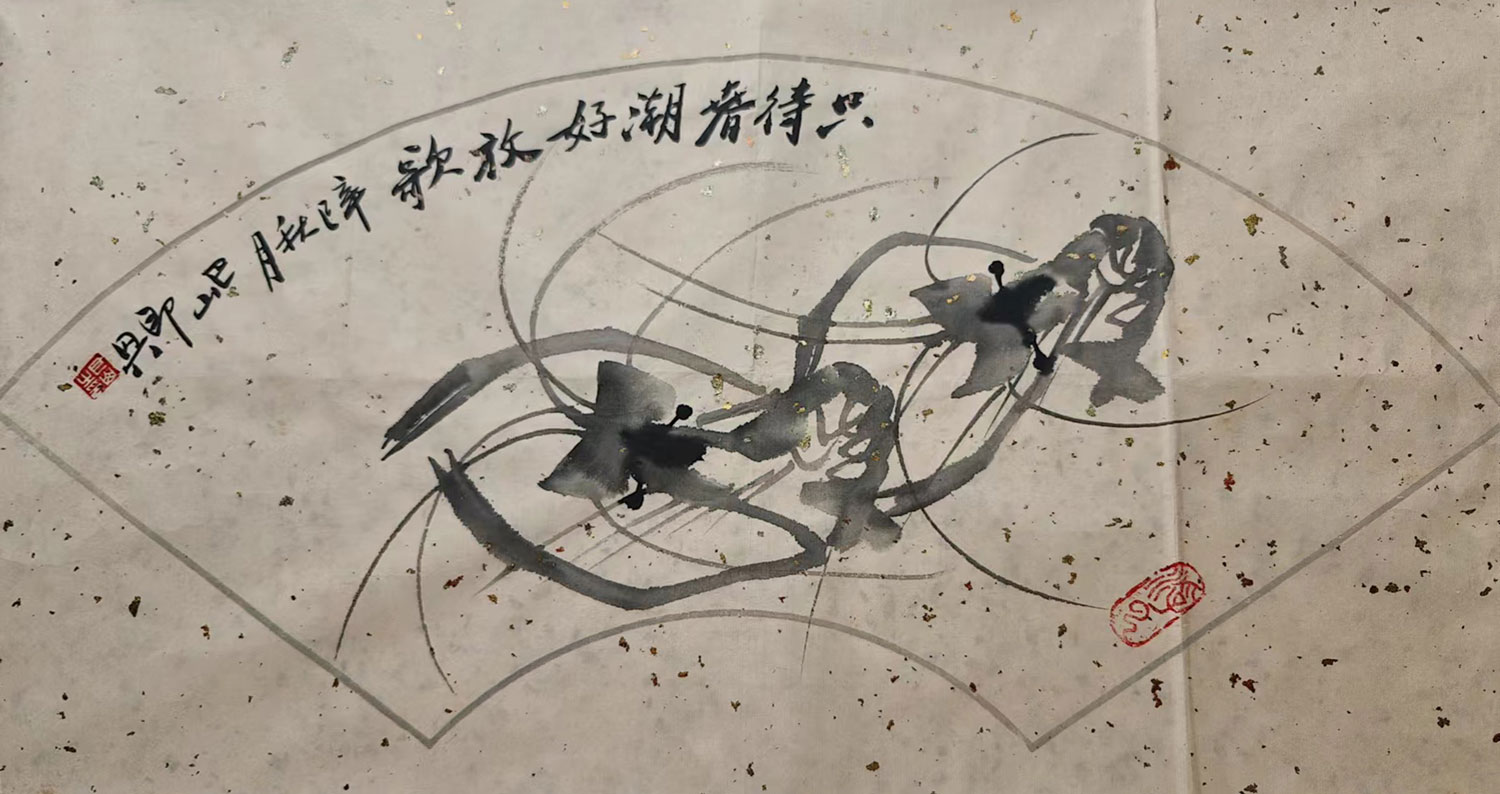 只待春潮好放歌 辛巳秋月 巴山 郎